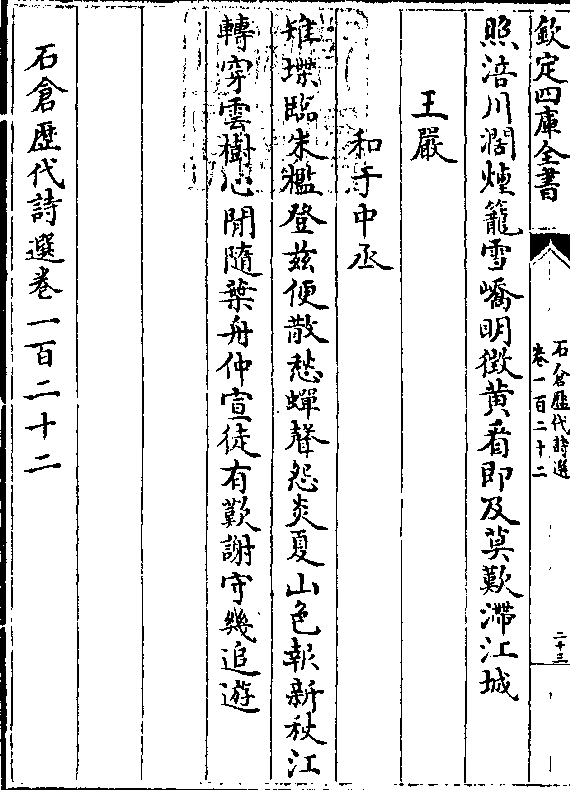 欽定四庫全書
石倉歴代詩選
卷一百二十二
二十三
照涪川濶煙籠雪嶠明徴黄看即及莫歎滯江城
王嚴
和于中丞
雉堞臨朱檻登兹便散愁蟬聲怨炎夏山色報新秋江
轉穿雲樹心閒隨葉舟仲宣徒有歎謝守幾追遊
石倉歴代詩選卷一百二十二